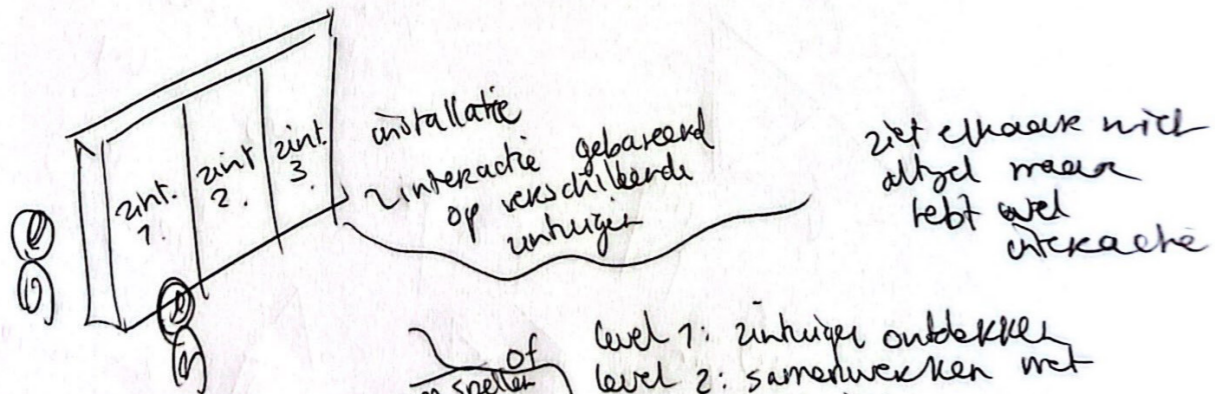 zint. 1.
zint 2.
zint. 3.
installatie
interactie gebaseerd
op verschillende
zintuigen
ziet elkaar niet
altijd maar
hebt wel
interactie
of
spellen
level 1: zintuigen ontdekken
level 2: samenwerken met